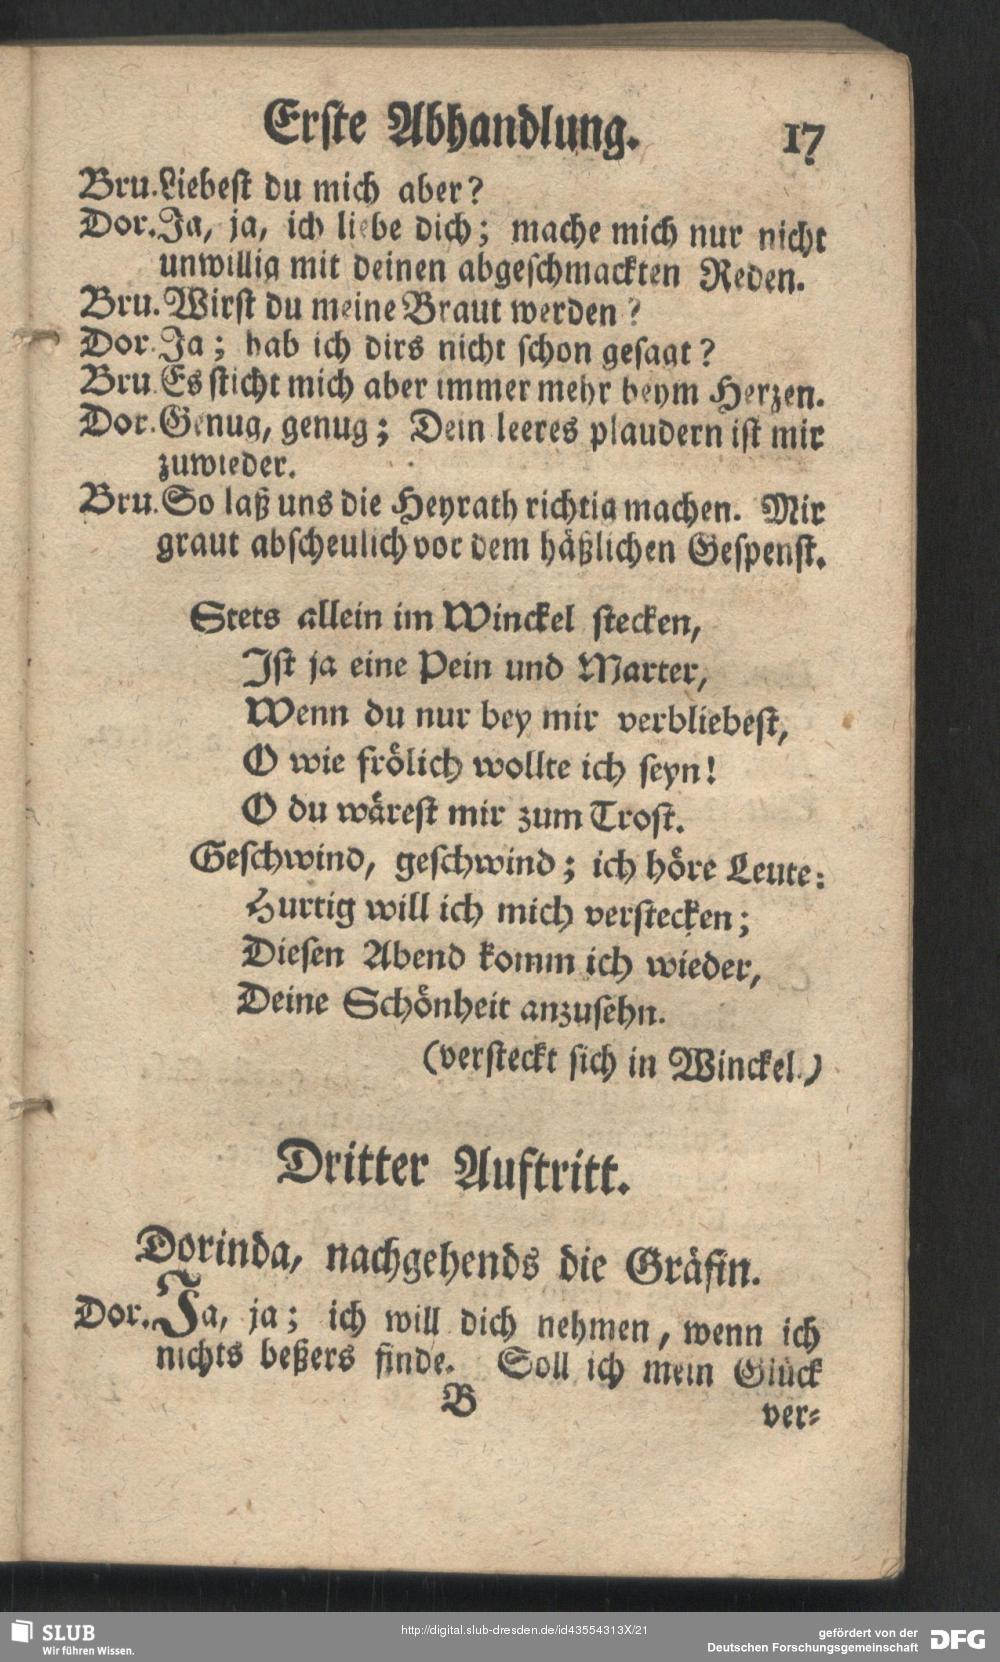 Erste Abhandlung. 17
Bru. Liebest du mich aber?
Dor. Ja, ja, ich liebe dich; mache mich nur nicht
unwillig mit deinen abgeschmackten Reden.
Bru. Wirst du meine Braut werden?
Dor. Ja; hab ich dirs nicht schon gesagt?
Bru. Es sticht mich aber immer mehr beym Herzen.
Dor. Genug, genug; Dein leeres plaudern ist mir
zuwieder.
Bru. So laß uns die Heyrath richtig machen. Mir
graut abscheulich vor dem häßlichen Gespenst.
Stets allein im Winckel stecken,
Ist ja eine Pein und Marter,
Wenn du nur bey mir verbliebest,
O wie frölich wollte ich seyn!
O du wärest mir zum Trost.
Geschwind, geschwind; ich höre Leute:
Hurtig will ich mich verstecken;
Diesen Abend komm ich wieder,
Deine Schönheit anzusehn.
(versteckt sich in Winckel.)
Dritter Auftritt.
Dorinda, nachgehends die Gräfin.
Dor. Ja, ja; ich will dich nehmen, wenn ich
nichts beßers finde. Soll ich mein Glück
B ver-
SLUB
Wir führen Wissen.
http://digital.slub-dresden.de/id43554313X/21
gefördert von der
Deutschen Forschungsgemeinschaft
DFG